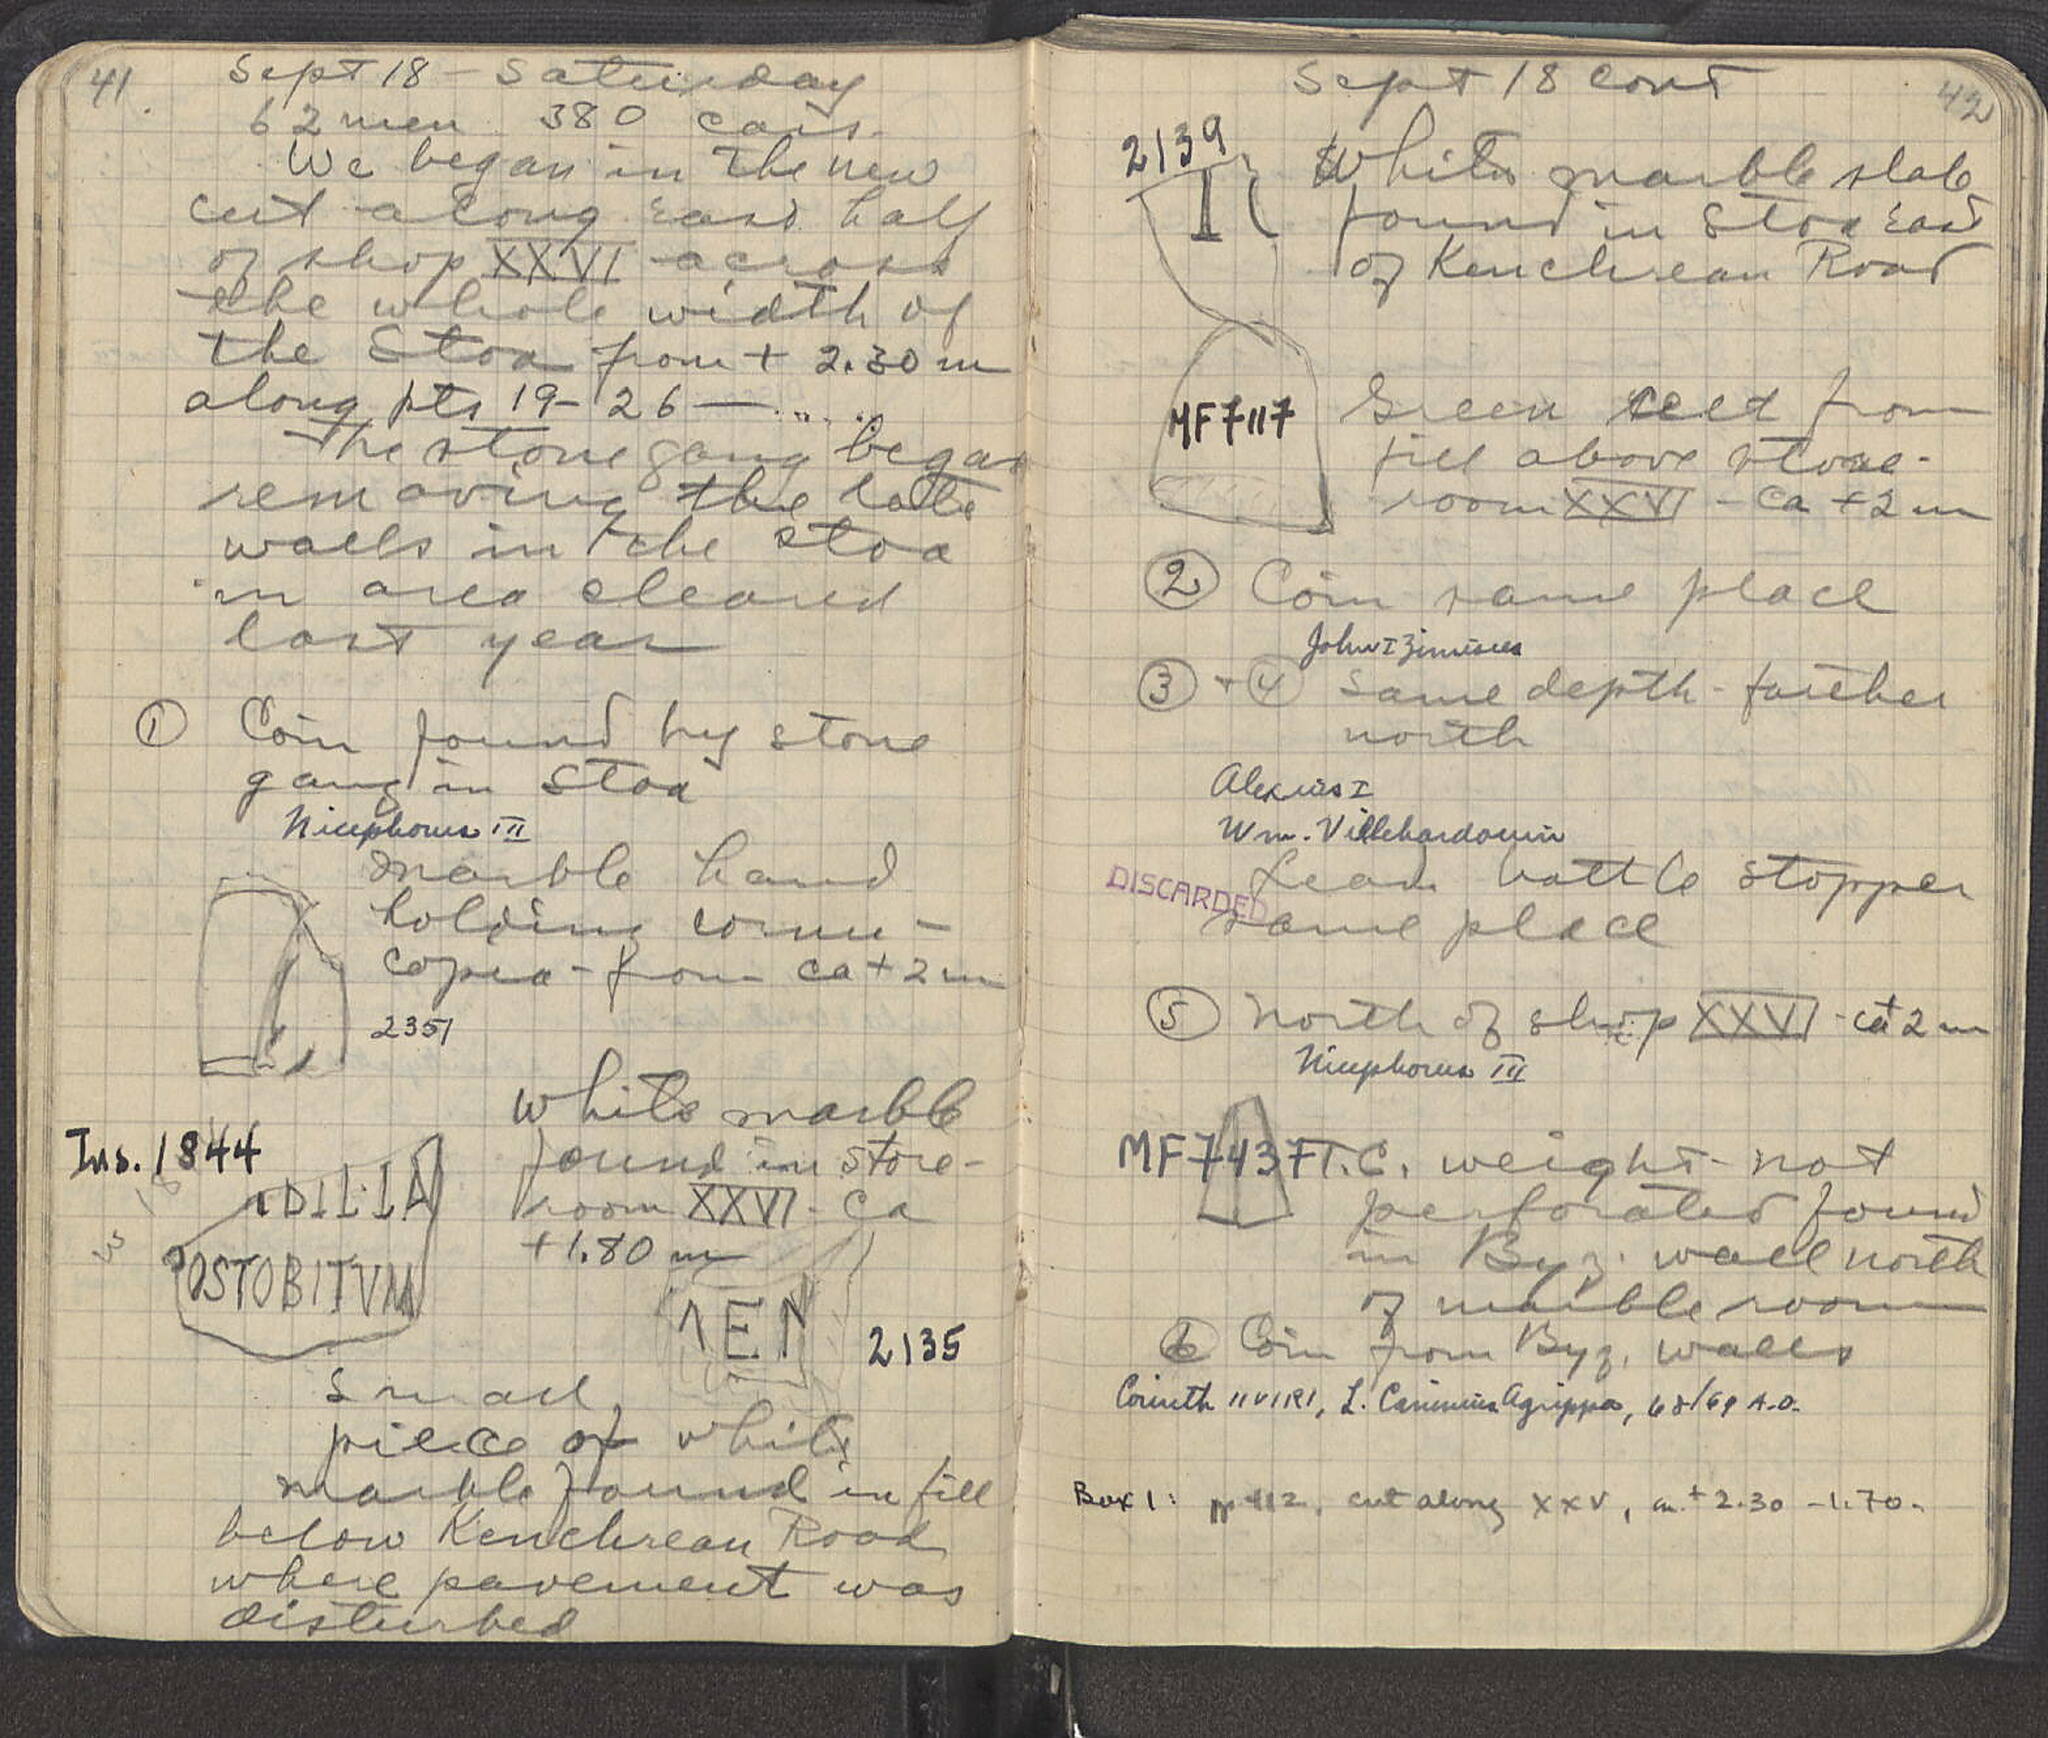 41
Sept 18 - Saturday
62 men 380 cars.
We began in the new
cut along East half
of shop XXVI across
the whole width of
the Stoa from + 2.30 m
along pts 19-26 —
The stone gang began
removing the late
walls in the Stoa
in area cleared
last year
① Coin found by stone
gang in Stoa
Nicephorus III
Marble hand
holding cornu-
copia - from ca + 2 m
2351
Ins. 1844
IDILIA
OSTOBITVM
White marble
found in store-
room XXVI - Ca
+ 1.80 m
ΛEN
2135
Small
piece of white
marble found in fill
below Kenchrean Road
where pavement was
disturbed
Sept 18 cont
42
2139
White marble slab
found in Stoa East
of Kenchrean Road
MF 7117
Green celt from
fill above store-
room XXVI - Ca + 2 m
② Coin same place
John I Zimisces
③ + ④ Same depth - farther
north
Alexius I
Wm. Villehardouin
DISCARDED
Lead bottle stopper
same place
⑤ North of shop XXVI - ca + 2 m
Nicephorus III
MF 7437
T.C. weight - not
perforated found
in Byz. wall north
of marble room
⑥ Coin from Byz. walls
Corinth IIVIRI, L. Caninius Agrippa, 68/69 A.D.
Box 1: cut along XXV, + 2.30 - 1.70.